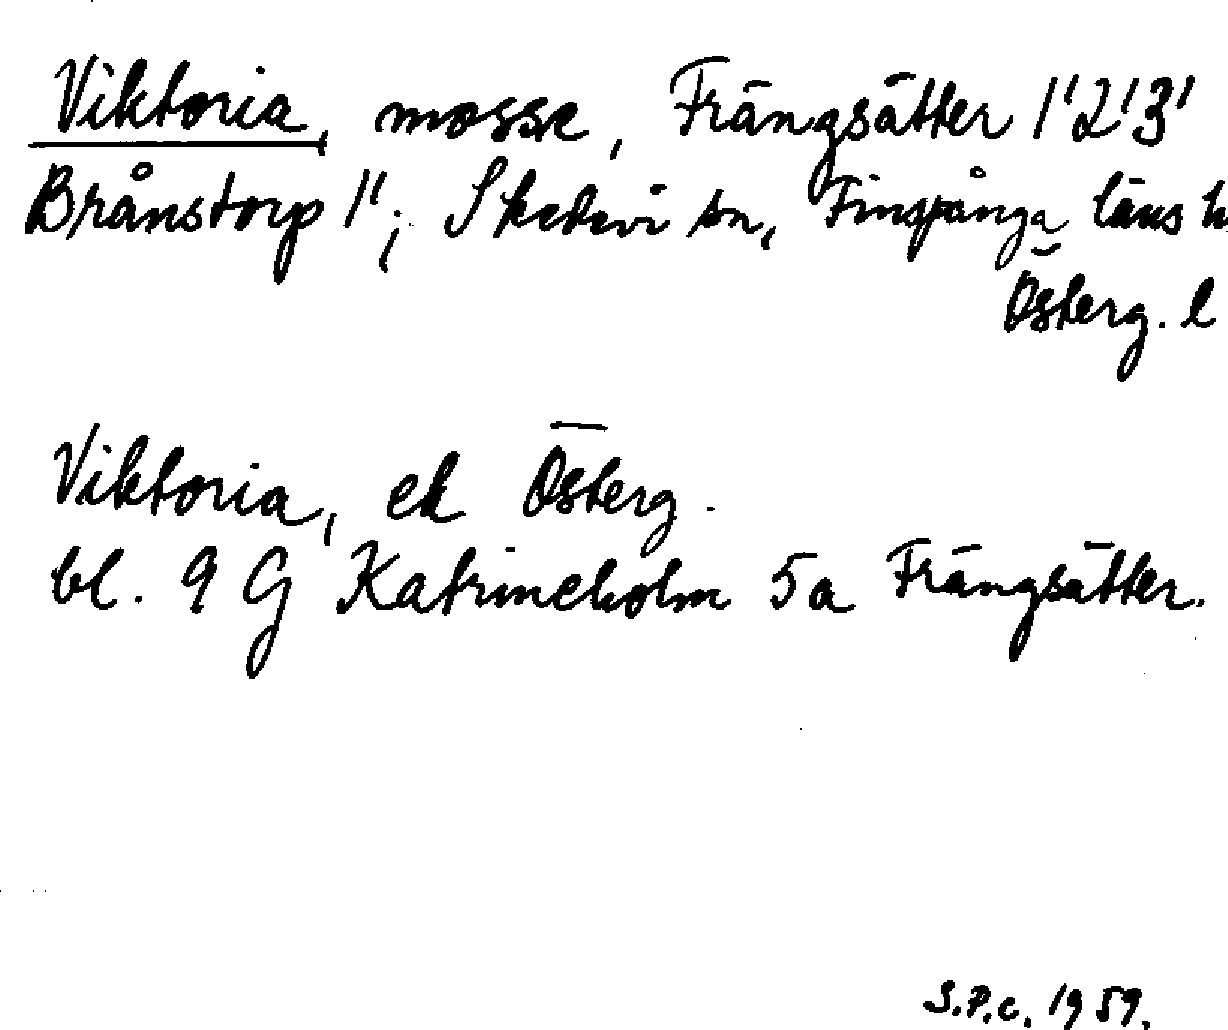 Viktoria, mosse, Frängsätter 1'2'3'
Brånstorp 1'; Skedevi sn, Finspånga läns h
Österg. l
Viktoria, ek Österg.
bl. 9 G Katrineholm 5a Frängsätter.
S.P.C. 1959.